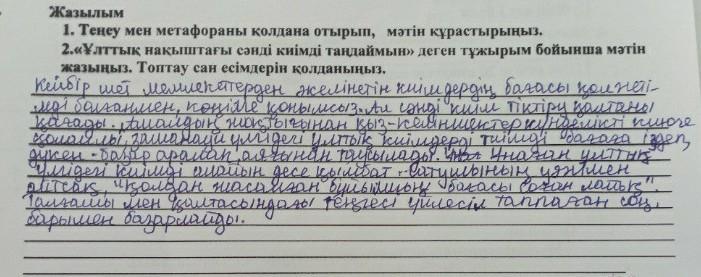 Жазылым
1. Теңеу мен метафораны қолдана отырып, мәтін құрастырыңыз.
2.«Ұлттық нақыштағы сәнді киімді таңдаймын» деген тұжырым бойынша мәтін
жазыңыз. Топтау сан есімдерін қолданыңыз.
Кейбір шет мемлекеттерден әкелінетін киімдердің бағасы қолжеті-
мді болғанмен, көңілге қонымсыз. Ал сәнді киім тіктіру қалтаны
қағады. Амалдың жоқтығынан қыз-келіншектер күнделікті киюге
қолайлы, заманауи үлгідегі ұлттық киімдерді тиімді бағаға іздеп,
дүкен-базар аралап, аяғынан таусылады. Ұнаған ұлттық
үлгідегі киімді алайын десе қымбат. Сатушының уәжімен
айтсақ, "қолдан жасалған бұйымның бағасы соған лайық".
Талғамы мен қалтасындағы теңгесі үйлесім таппаған соң,
барымен базарлайды.